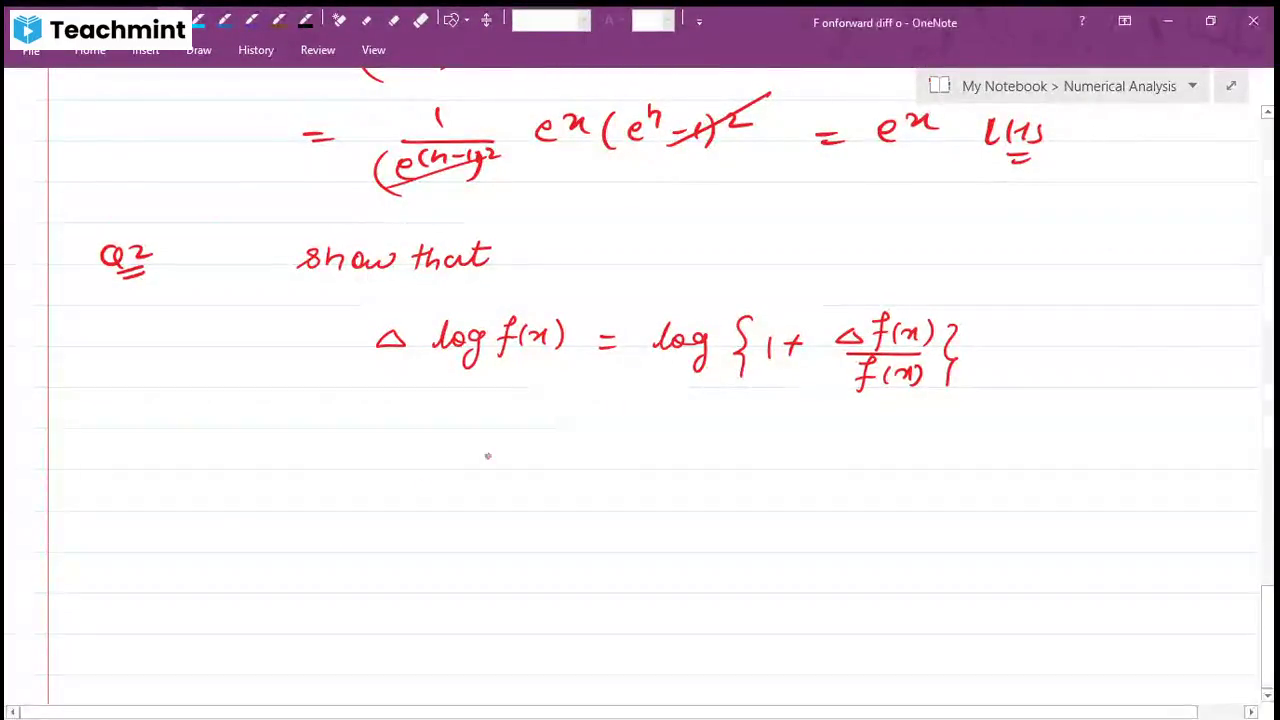 Teachmint
F onforward diff o - OneNote
File Home Insert Draw History Review View
My Notebook > Numerical Analysis
= 1/(e^(h-1))^2 e^x (e^h - 1)^2 = e^x LHS
Q2 show that
Δ log f(x) = log { 1 + Δ f(x)/f(x) }